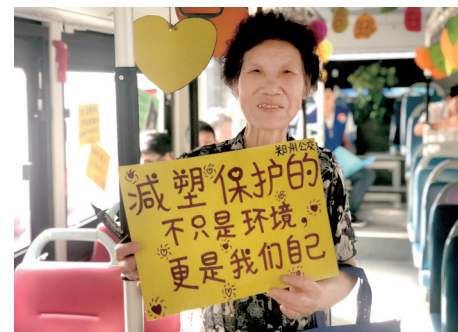 郑州公交
减塑保护的
不只是环境，
更是我们自己